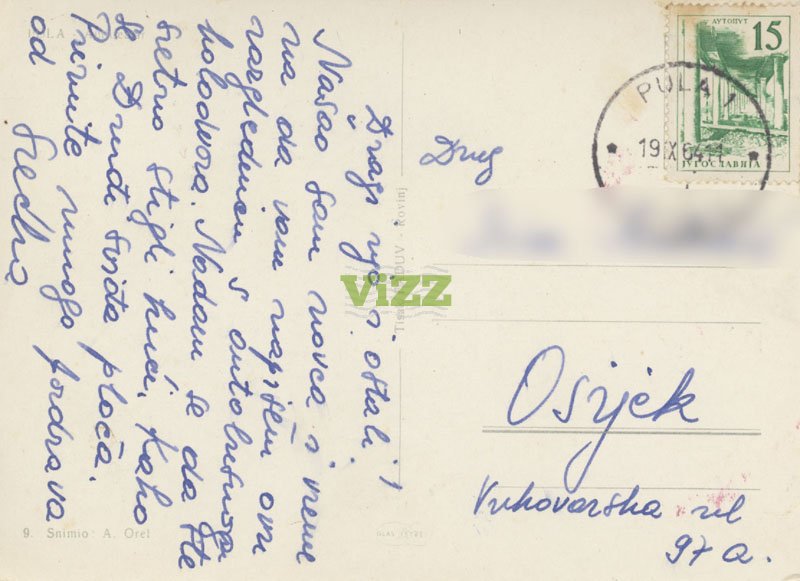 Dragi ujo i ostali!
Našao sam novca i vreme
na da vam napišem ovu
razglednicu s autobusnoga
kolodvora. Nadam se da ste
sretno stigli kući. Kako
ploča.
Primite mnogo pozdrava
od
PULA
9. Snimio: A. Orel
Tisak Rovinj
vizz
АУТОПУТ
15
ЈУГОСЛАВИЈА
PULA 1
19 IX 64
Drug
Osijek
Vukovarska ul
97 a.